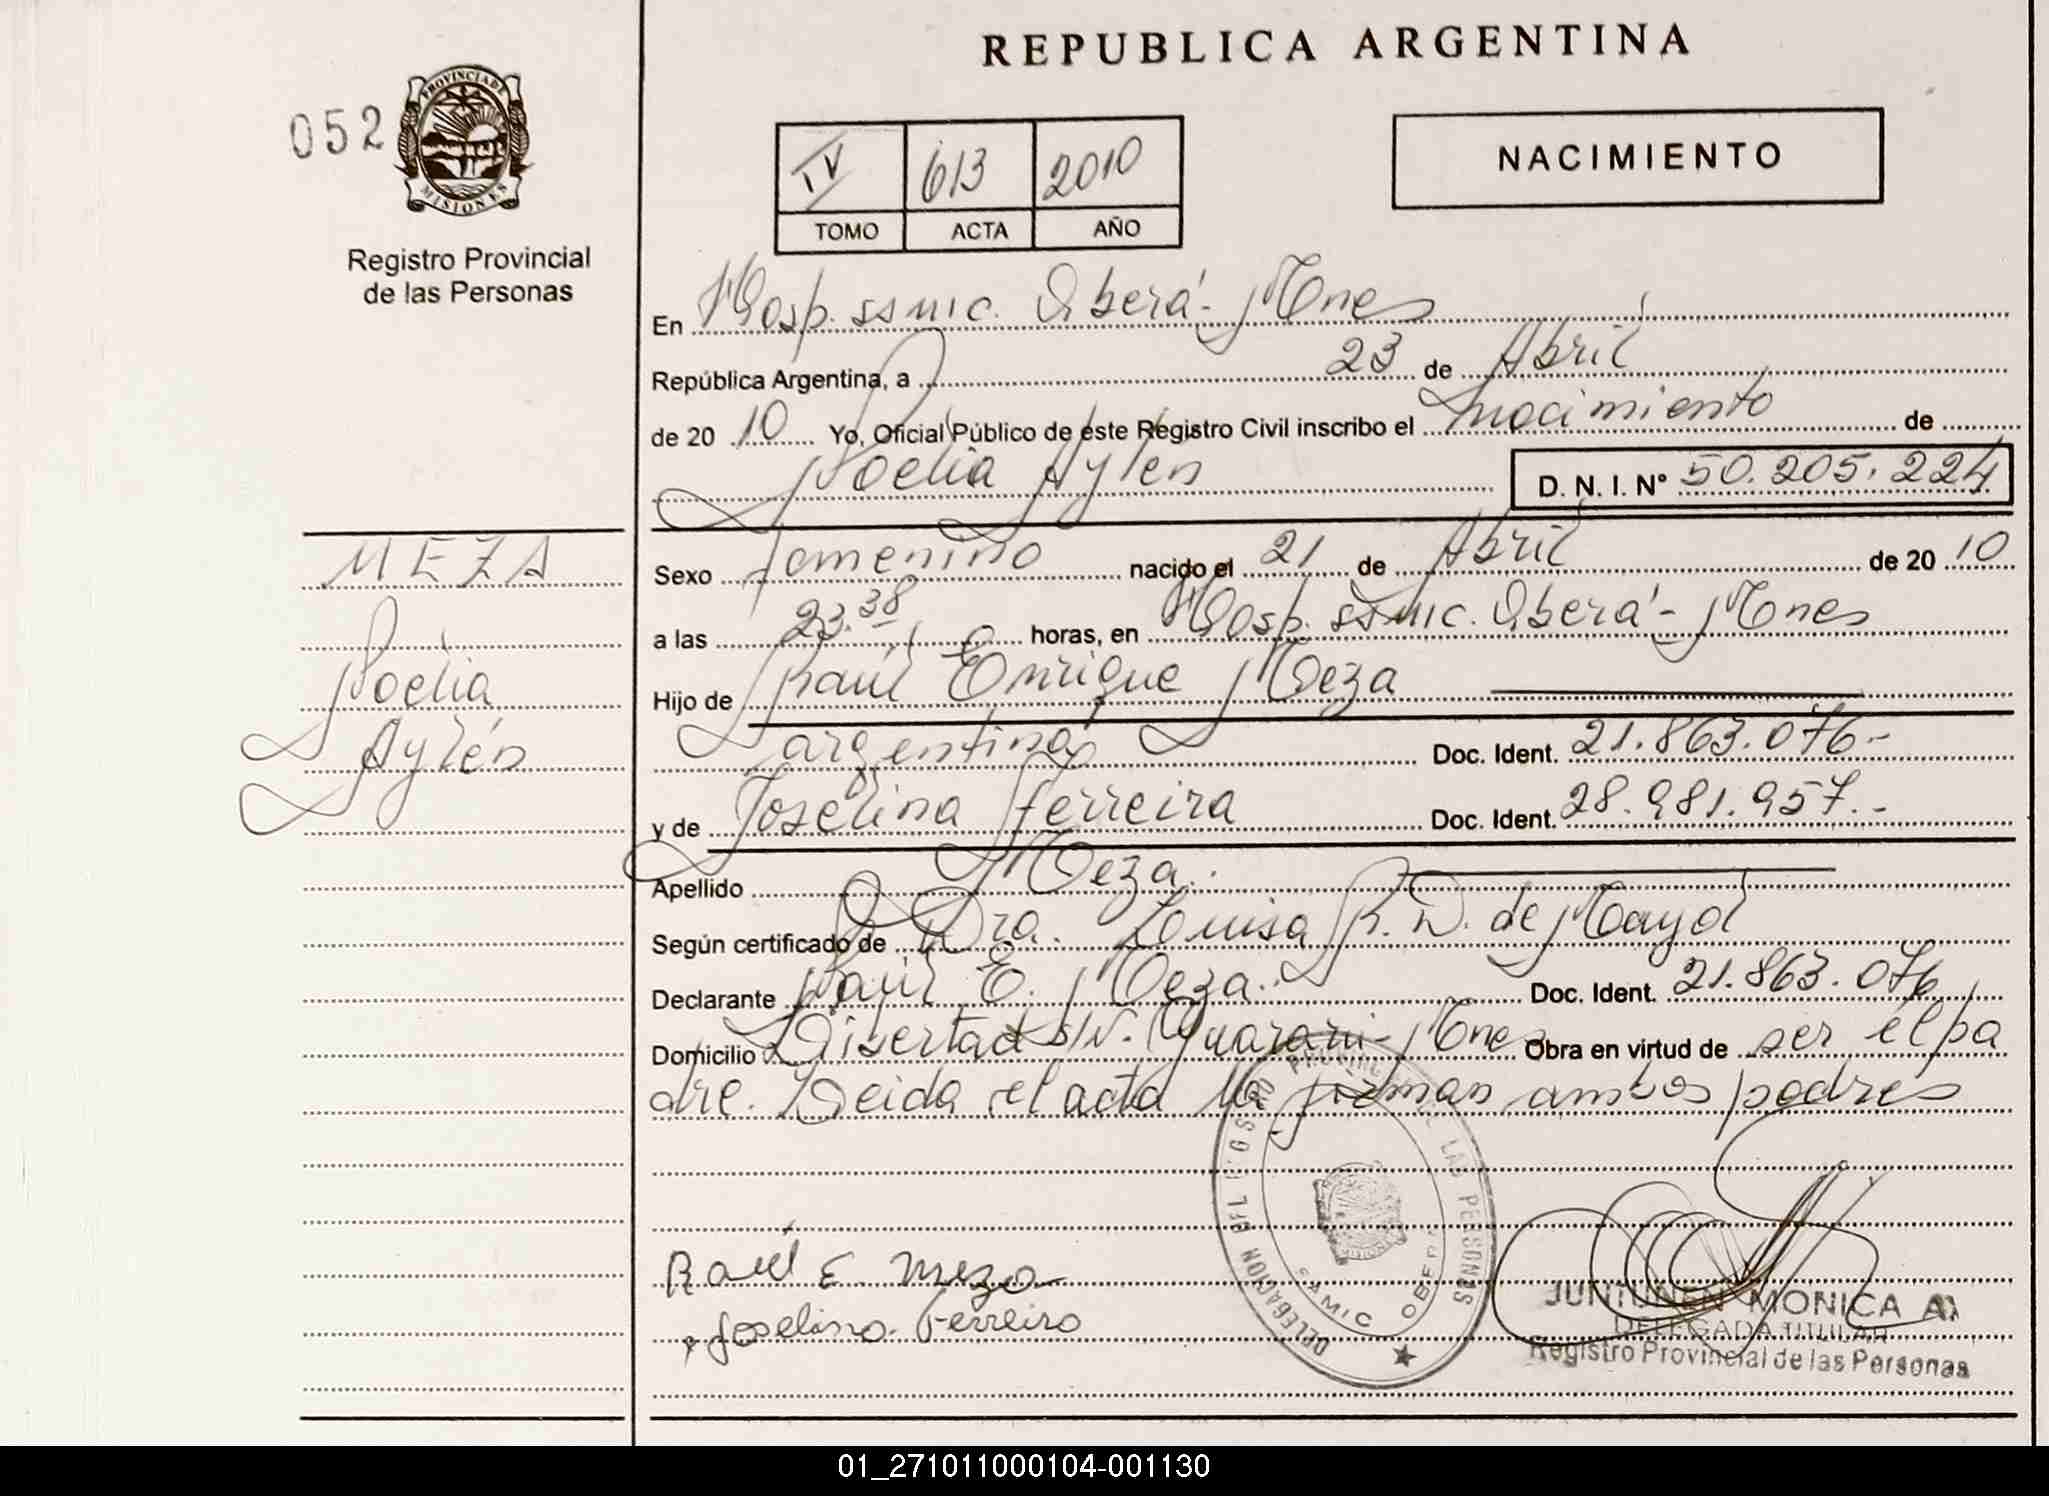 REPUBLICA ARGENTINA
052
PROVINCIA DE
MISIONES
Registro Provincial
de las Personas
IV 613 2010
TOMO ACTA AÑO
NACIMIENTO
En Hosp. ssmic. Oberá - Mnes
República Argentina, a 23 de Abril
de 20 10 Yo, Oficial Público de este Registro Civil inscribo el nacimiento de
Noelia Aylen D. N. I. N° 50.205.224
MEZA
Noelia
Aylén
Sexo femenino nacido el 21 de Abril de 20 10
a las 23.38 horas, en Hosp. ssmic. Oberá - Mnes
Hijo de Raúl Enrique Meza
argentino Doc. Ident. 21.863.076.-
y de Joselina Ferreira Doc. Ident. 28.981.957.-
Apellido Meza.
Según certificado de Dra. Luisa R. D. de Mayol
Declarante Raúl E. Meza. Doc. Ident. 21.863.076
Domicilio Libertad s/N. Guarani - Mnes Obra en virtud de ser el pa
dre. Leida el acta la firman ambos padres
Raúl E. Meza
Joselina Ferreira
DELEGACION DEL REGISTRO PROVINCIAL DE LAS PERSONAS
SAMIC OBERA
JUNTUNEN MONICA A.
DELEGADA TITULAR
Registro Provincial de las Personas
01_271011000104-001130